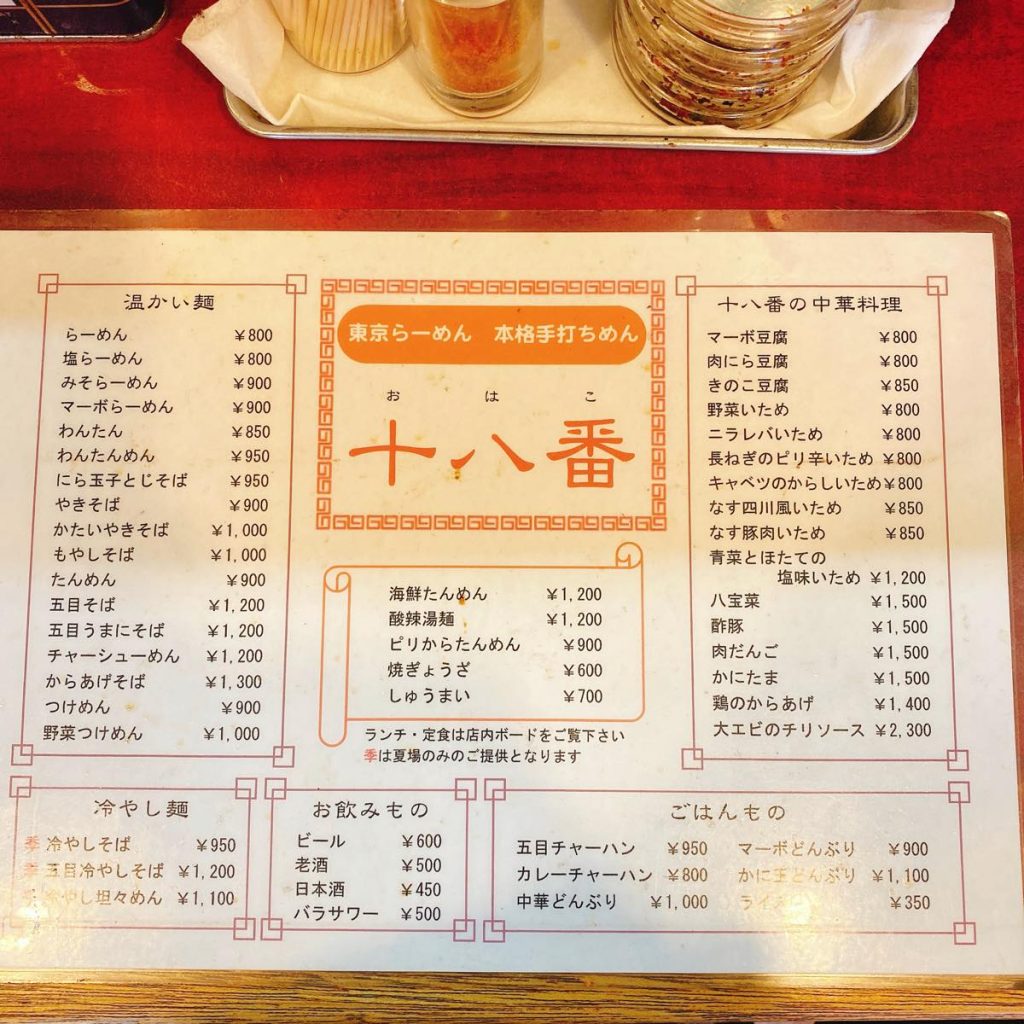 温かい麺
らーめん ¥800
塩らーめん ¥800
みそらーめん ¥900
マーボらーめん ¥900
わんたん ¥850
わんたんめん ¥950
にら玉子とじそば ¥950
やきそば ¥900
かたいやきそば ¥1,000
もやしそば ¥1,000
たんめん ¥900
五目そば ¥1,200
五目うまにそば ¥1,200
チャーシューめん ¥1,200
からあげそば ¥1,300
つけめん ¥900
野菜つけめん ¥1,000
東京らーめん 本格手打ちめん
おはこ
十八番
海鮮たんめん ¥1,200
酸辣湯麺 ¥1,200
ピリからたんめん ¥900
焼ぎょうざ ¥600
しゅうまい ¥700
ランチ・定食は店内ボードをご覧下さい
季は夏場のみのご提供となります
十八番の中華料理
マーボ豆腐 ¥800
肉にら豆腐 ¥800
きのこ豆腐 ¥850
野菜いため ¥800
ニラレバいため ¥800
長ねぎのピリ辛いため ¥800
キャベツのからしいため ¥800
なす四川風いため ¥850
なす豚肉いため ¥850
青菜とほたての
塩味いため ¥1,200
八宝菜 ¥1,500
酢豚 ¥1,500
肉だんご ¥1,500
かにたま ¥1,500
鶏のからあげ ¥1,400
大エビのチリソース ¥2,300
冷やし麺
季 冷やしそば ¥950
季 五目冷やしそば ¥1,200
季 冷やし坦々めん ¥1,100
お飲みもの
ビール ¥600
老酒 ¥500
日本酒 ¥450
バラサワー ¥500
ごはんもの
五目チャーハン ¥950 マーボどんぶり ¥900
カレーチャーハン ¥800 かに玉どんぶり ¥1,100
中華どんぶり ¥1,000 ライス ¥350